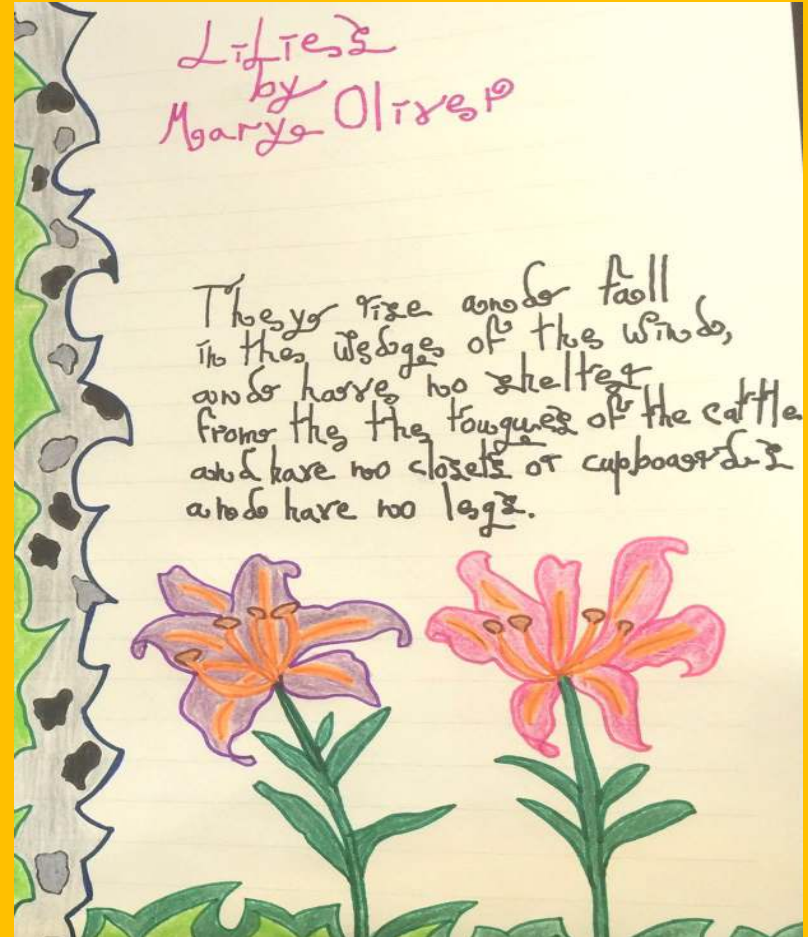 Lilies
by
Mary Oliver
They rise and fall
in the wedges of the wind,
and have no shelter
from the the tongues of the cattle
and have no closets or cupboards
and have no legs.